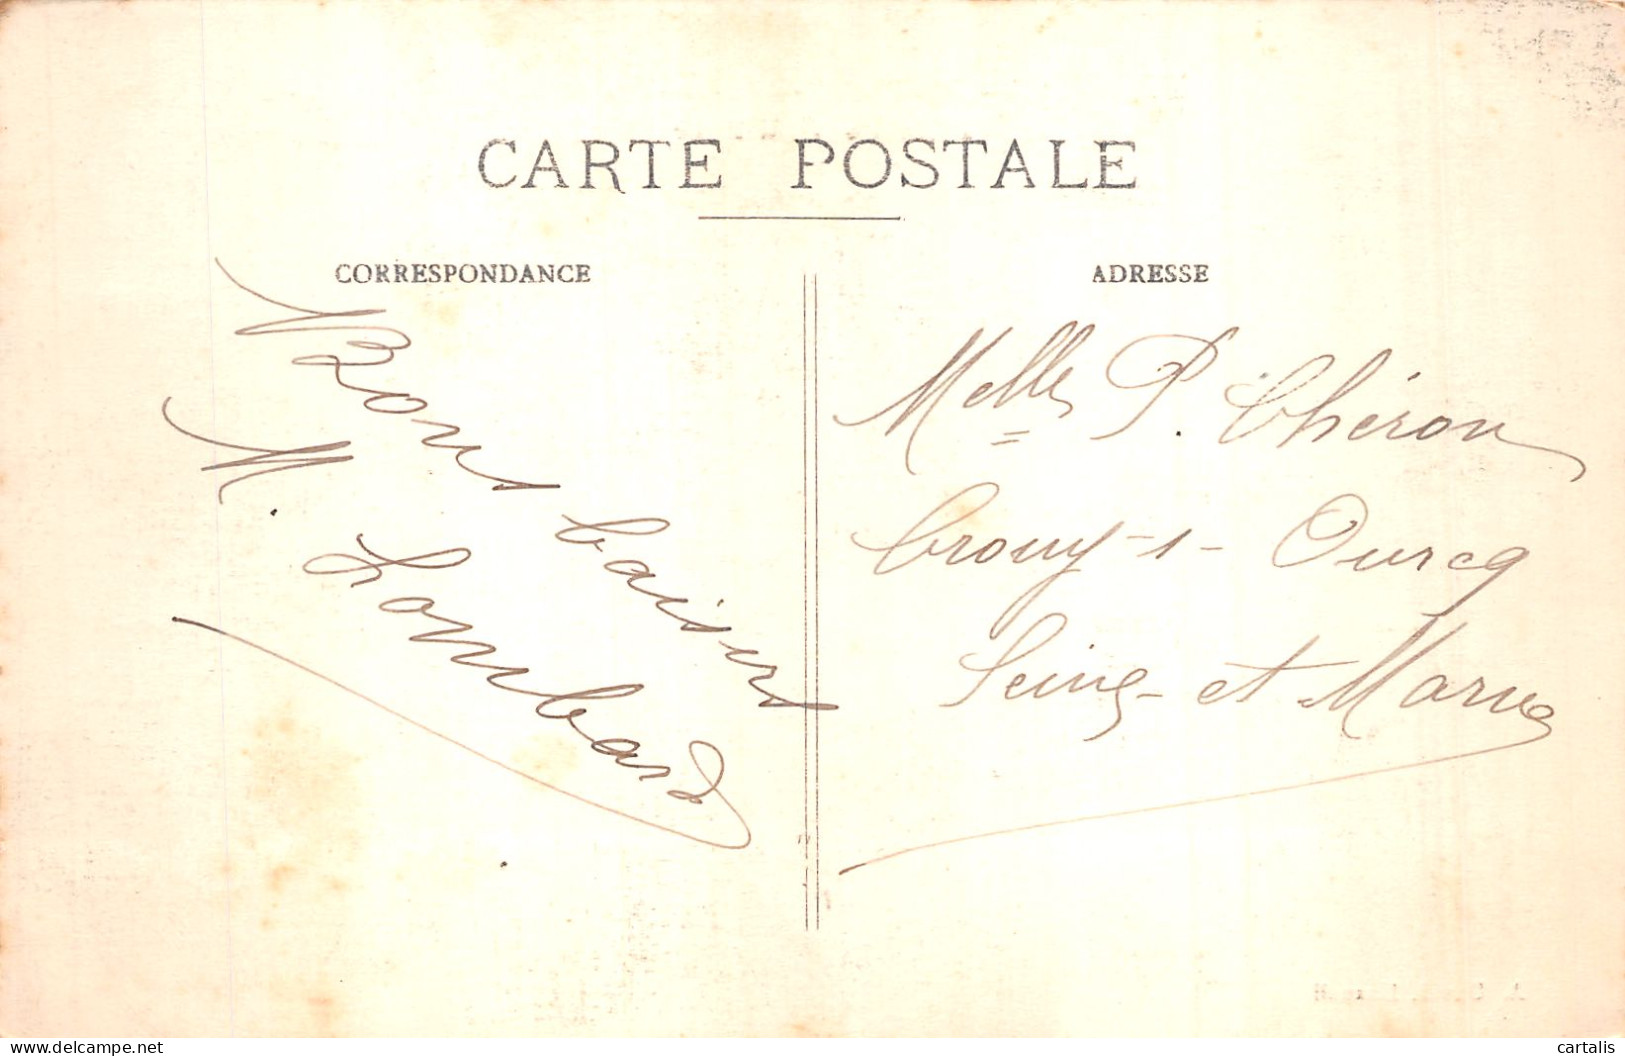 CARTE POSTALE
CORRESPONDANCE
Bons baisers
M. Lombard
ADRESSE
Melle P. Chéron
Crouy-s-Ourcq
Seine-et Marne
www.delcampe.net
cartalis